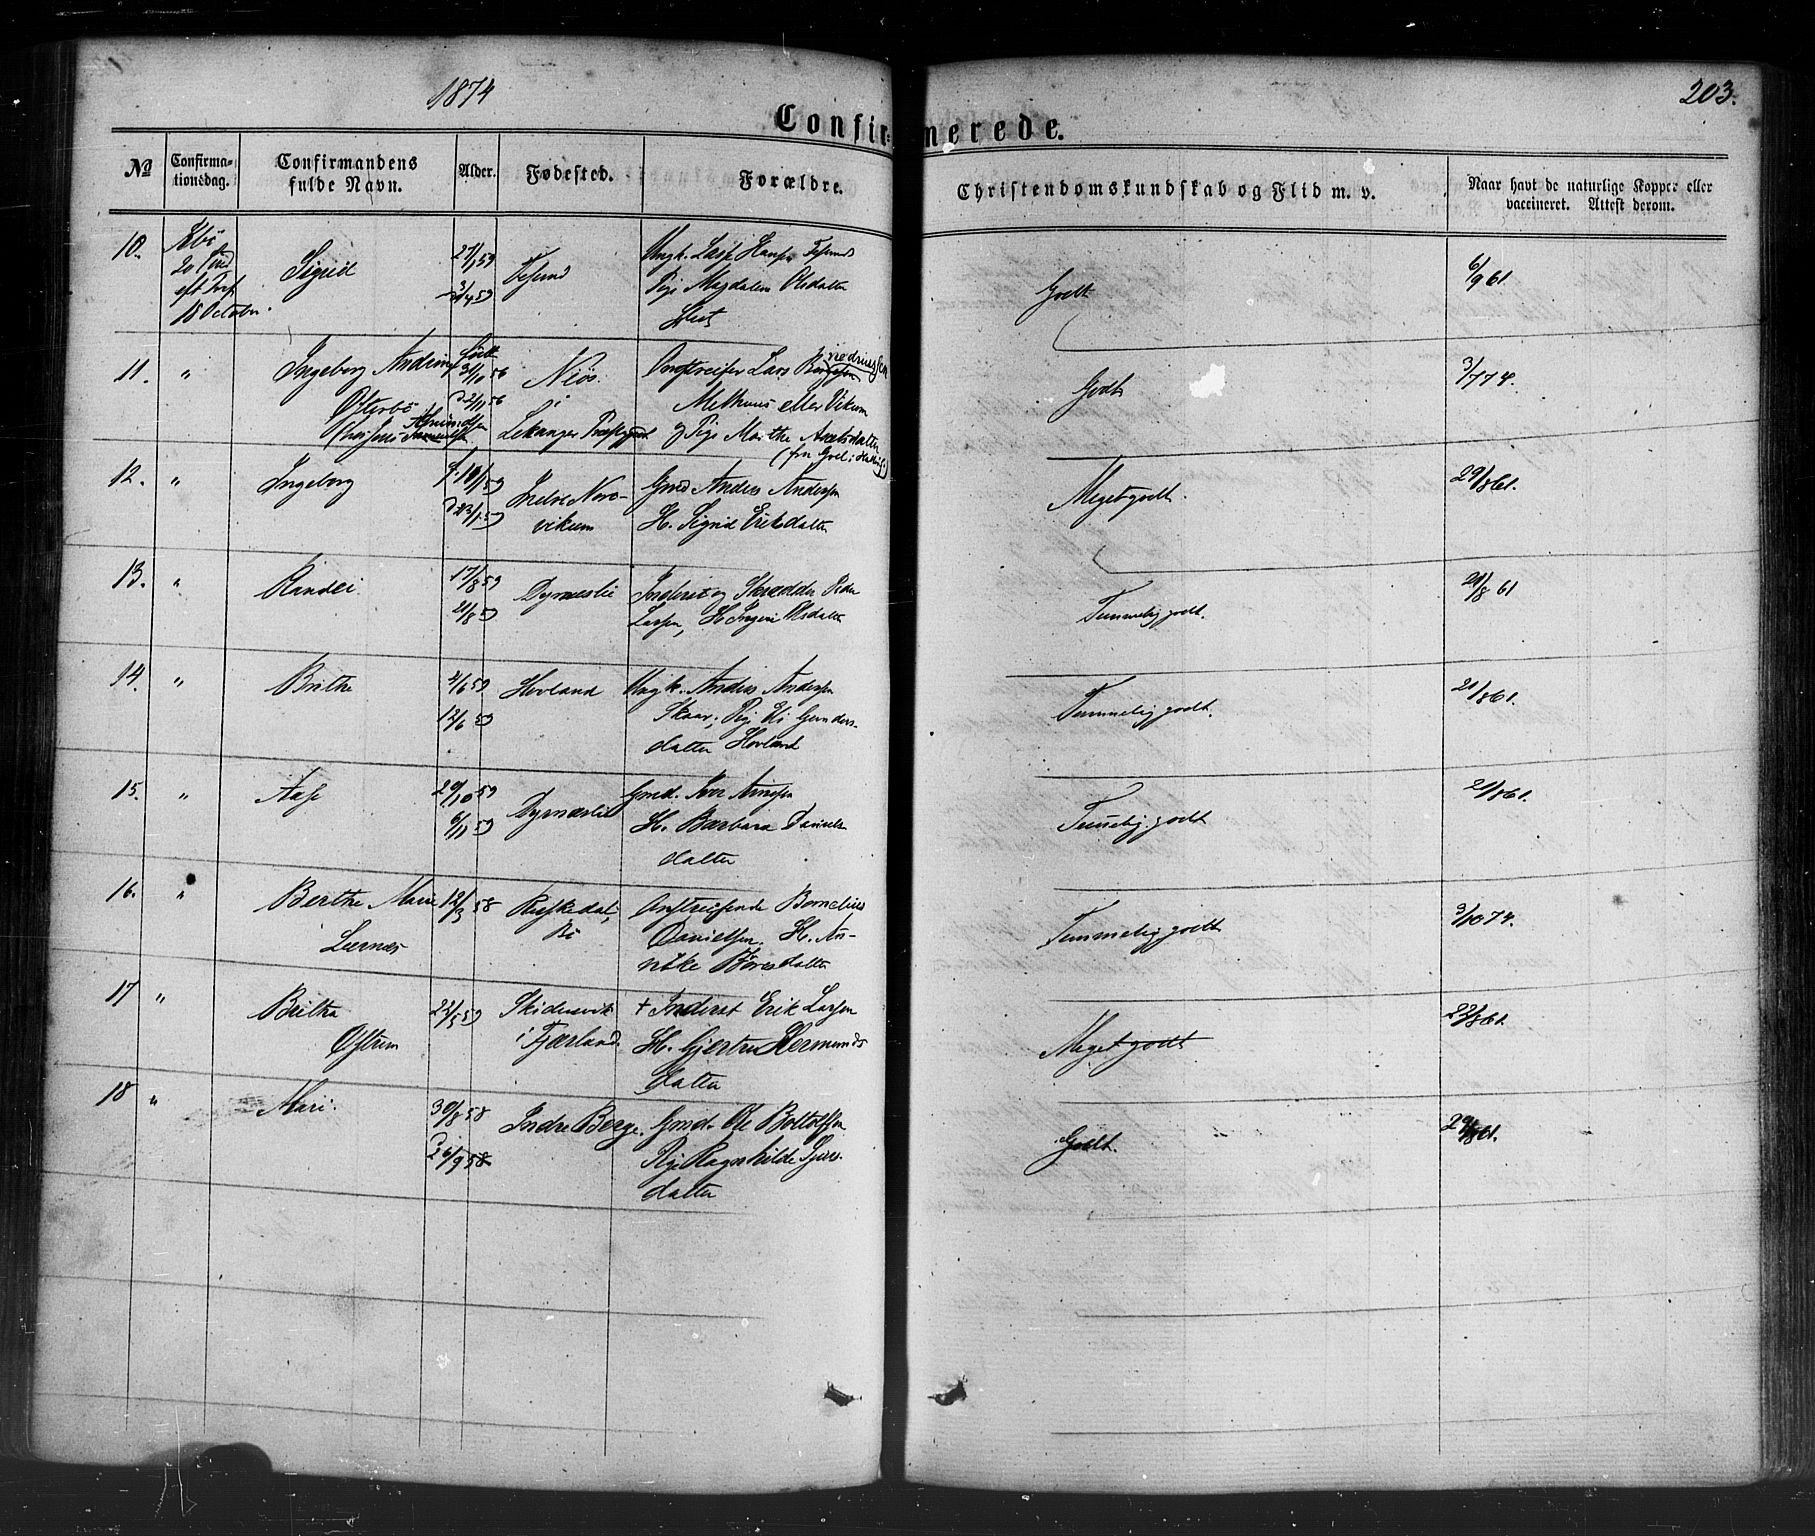 1874
203.
Confirmerede.
No
Confirmationsdag.
Confirmandens fulde Navn.
Alder.
Fødested.
Forældre.
Christendomskundskab og Flid m. v.
Naar havt de naturlige Kopper eller vaccineret. Attest derom.
10.
20
18 October
Sigrid
27/1 59
3/4 59
Tesund
Ungk. Lasse Hansen
Pige Magdalena Olsdatter
Godt
6/9 61
11.
"
Ingeborg Andrine
Ofterbø
født
31/10 56
2/11 56
Niøs.
Lekanger
Lars
Melhuus eller Vikum
Pige Marthe
Godt
3/7 74.
12.
"
Ingeborg
f. 10/1 59
Indre Nore-
vikum
Gmd Anders Andersen
H. Sigrid Eriksdatter
Meget godt.
29/8 61.
13.
"
Randei
17/8 59
21/8 59
Dyrneslie
Inderst og Skrædder Peder
Larsen, H. Ingeri Olsdatter
Temmelig godt.
21/8 61
14.
"
Brithe
2/6 59
12/6 59
Hovland
Ungk. Anders Andersen
Skaar; Pige
datter Hovland
Temmelig godt.
21/8 61.
15.
"
Aase
29/10 59
6/11 59
Dyrneslie
Gmd. Iver
H. Barbara Daniels
datter
Temmelig godt
21/8 61.
16.
"
Berthe Marie
Leernæs
12/3 58
Ruskedal,
Bø
Omstreifende Bornelius
Danielsen. H. An-
nike Børresdatter
Temmelig godt
3/10 74.
17
"
Britha
Oftrem
22/5 59
Skidesvik
i Fjærland.
+ Inderst Erik Larsen
H. Gjertru Hermunds
datter
Meget godt
22/8 61
18
"
Mari.
30/8 58
26/9 58
Indre Berge.
Gmd. Ole Bottolfsen
Pige Ragnhilde
datter
Godt.
29/8 61.